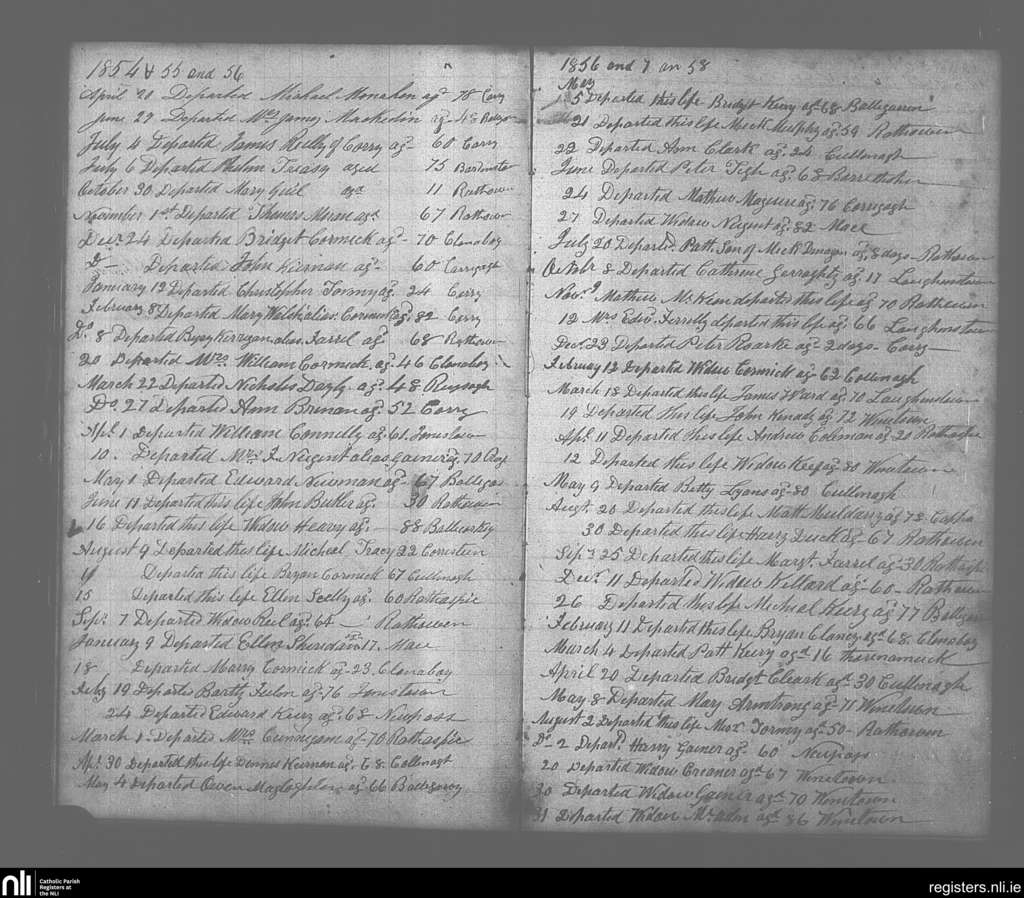 1854 & 55 and 56
April 20 Departed Michael Monahen agd 78 Corry
June 29 Departed Mrs James ag 48
July 4 Departed James Reilly of Corry ag 60 Corry
July 6 Departed Phelim Treasy aged 75
October 30 Departed Mary Guil aga 11 Rathow
November 1st Departed Thomas Moran agd 67 Rathow
Decr 24 Departed Bridget Cormick agd 70 Clonaboy
Do Departed John Kiernan agd 60 Corrigagt
January 12 Departed Christopher Tormy ag. 24 Corry
February 8 Departed Mary Welsh alias Cormick ag. 82 Corry
Do 8 Departed Bryey Kerugan alias Farrel agd 68 Rathowen
20 Departed Mrs William Cormick ag. 46 Clonaboy
March 22 Departed Nicholas Dayly ag. 48
Do 27 Departed Ann Brenan ag. 52 Corry
Apl 1 Departed William Connelly ag. 61 Joneslown
10. Departed Mrs Jn Nugent alias Gainer ag. 70
May 1 Departed Edward Newman ag. 67 Ballegar
June 11 Departed this life John Butler ag. 30 Rathowen
16 Departed this life Widow Heavy ag. 88
August 9 Departed this life Micheal Tracy 22
11 Departed this life Bryan Cormick 67 Cullenagh
15 Departed this life Ellen Scelly ag. 60 Rathaspic
Sepr 7 Departed Widow Reil ag. 64 Rathowen
January 9 Departed Ellen Sheridan 17. Mace
18 Departed Marry Cormick ag. 23. Clonaboy
July 19 Departed Bartly ag. 76 Joneslown
24 Departed Edward Keny ag. 68 Newpass
March 1. Departed Mrs Cunnigam ag. 70 Rathaspic
Apl. 30 Departed this life Dennes Kiernan ag. 68. Collenagt
May 4 Departed Owen ag. 66 Ballegaroy
1856 and 7 an 58
May
5 Departed this life Bridget Keny ag. 68 Ballegarren
21 Departed this life Mick Murphy ag. 59 Rathowen
22 Departed Ann Clark ag. 24 Cullenagh
June Departed Peter Tigh ag. 68
24 Departed Mathew ag. 76 Corrigagh
27 Departed Widow Nugent ag. 82 Mace
July 20 Departed Patt. Son of Mick Donagan ag. 8 days Rathowen
Octobr 8 Departed Catherne Gerraghty ag. 17 Loughinstown
Novr 9 Mathew departed this life ag. 70 Rathowen
12 Mrs Edwd Ferrelly departed this life ag. 66 Loughinstown
Decr 23 Departed Peter Roarke ag. 2 days Corry
February 12 Departed Widow Cormick ag. 62 Collenagh
March 18 Departed this life James Ward ag. 70 Loughinstown
19 Departed this life John Kenady ag. 72 Winetown
Apl. 11 Departed this life Andrew Coleman ag. 20 Rathaspic
12 Departed this life Widow Keef ag. 80 Winetown
May 9 Departed Betty Lyons ag. 80 Cullenagh
Augt. 20 Departed this life Matt Muldary ag. 72 Cappa
30 Departed this life Harry Quck ag. 67 Rathowen
Sepr 25 Departed this life Margt. Farrel ag. 30 Rathaspic
Decr. 11 Departed Widow Willard ag. 60 Rathowen
26 Departed this life Micheal Keny ag. 77 Ballegarr
February 11 Departed this life Bryan Clancy agd 68. Clonaboy
March 4 Departed Patt Keny agd 16
April 20 Departed Bridgt Cleark agd 30 Cullenagh
May 8 Departed Mary Armstrong ag. 71 Winetown
August 2 Departed this life Tormey agd 50 Rathowen
Do 2 Departd Harry Gainer ag. 60 Newpass
20 Departed Widow Creaner agd 67 Winetown
30 Departed Widow Gainer agd 70 Winetown
31 Departed Widow agd 86 Winetown
nli
Catholic Parish
Registers at
the NLI
registers.nli.ie